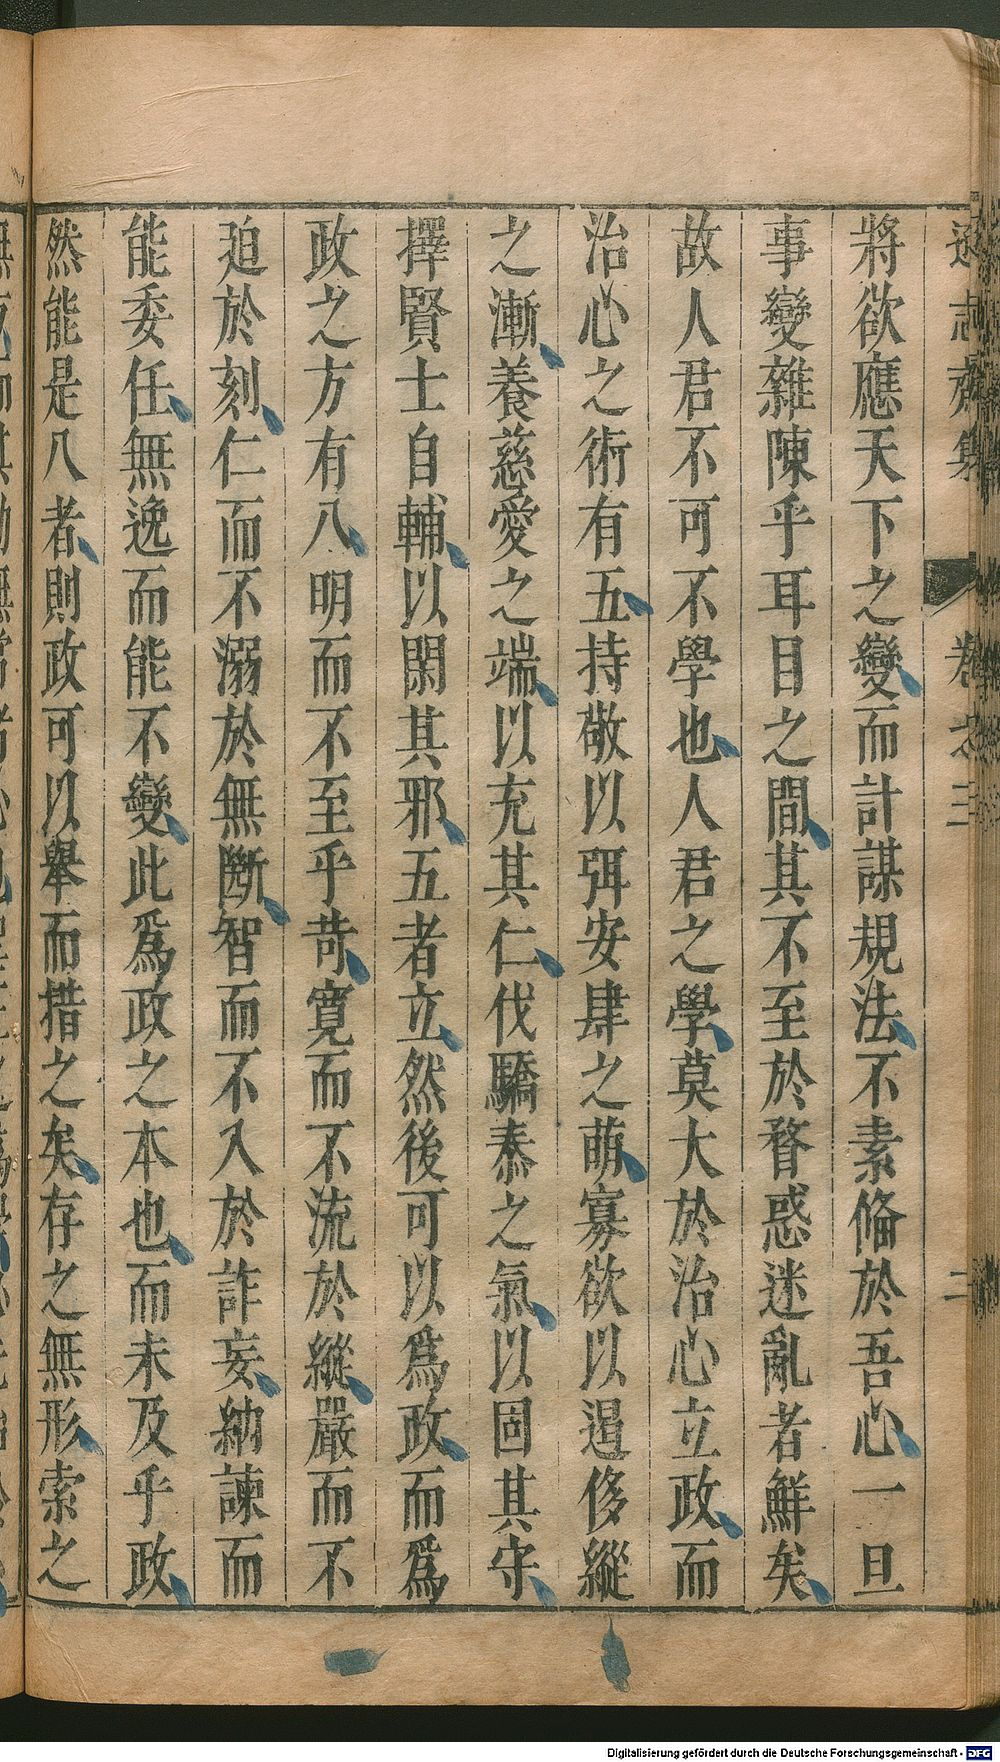 遜志齋集
卷之三
二
將欲應天下之變而計謀規法不素脩於吾心一旦
事變雜陳乎耳目之間其不至於瞀惑迷亂者鮮矣
故人君不可不學也人君之學莫大於治心立政而
治心之術有五持敬以弭安肆之萌寡欲以遏侈縱
之漸養慈愛之端以充其仁伐驕泰之氣以固其守
擇賢士自輔以閑其邪五者立然後可以爲政而爲
政之方有八明而不至乎苛寛而不流於縱嚴而不
迫於刻仁而不溺於無斷智而不入於詐妄納諫而
能委任無逸而能不變此爲政之本也而未及乎政
然能是八者則政可以舉而措之矣存之無形索之
Digitalisierung gefördert durch die Deutsche Forschungsgemeinschaft - DFG